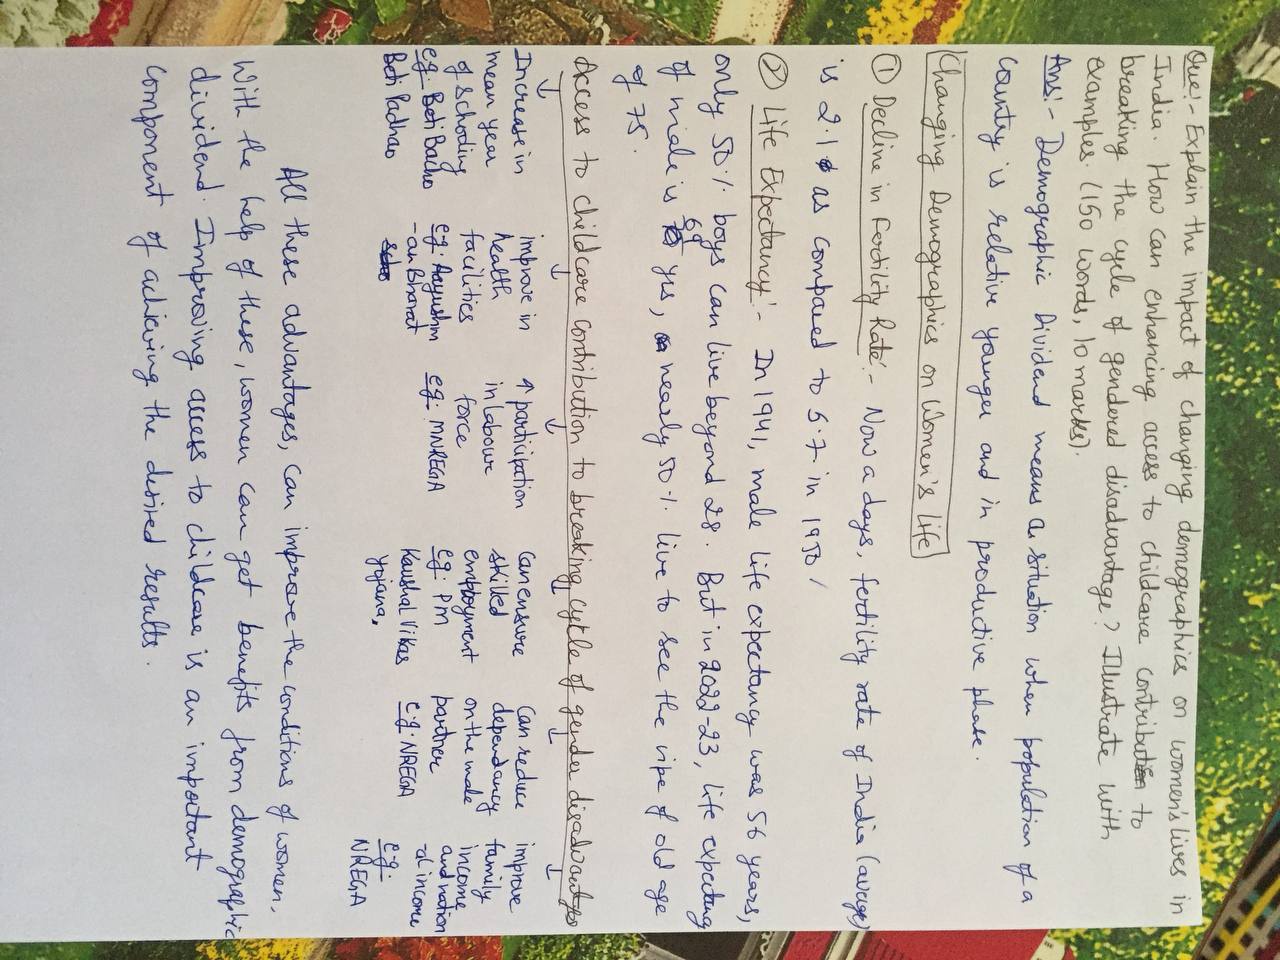 Que:- Explain the impact of changing demographics on women's lives in
India. How can enhancing access to childcare contribute to
breaking the cycle of gendered disadvantage? Illustrate with
examples. (150 words, 10 marks).
Ans:- Demographic Dividend means a situation when population of a
country is relative younger and in productive phase.
Changing Demographics on Women's Life
① Decline in Fertility Rate:- Now a days, fertility rate of India (average)
is 2.1 as compared to 5.7 in 1950/
② Life Expectancy:- In 1941, male life expectancy was 56 years,
only 50% boys can live beyond 28. But in 2022-23, life expectancy
of male is 69 yrs, nearly 50% live to see the ripe of old age
of 75.
Access to childcare contribution to breaking cycle of gender disadvantage
↓ ↓ ↓ ↓ ↓ ↓
Increase in
mean year
of schooling
eg:- Beti Bacho
Beti Padhao
improve in
health
facilities
eg:- Aayushm
-an Bharat
↑ participation
in labour
force
eg:- MNREGA
Can ensure
skilled
employment
eg:- PM
Kaushal Vikas
Yojana,
Can reduce
dependancy
on the male
partner
eg:- NREGA
improve
family
income
and nation
al income
eg:-
NREGA
All these advantages, can improve the conditions of women,
with the help of these, women can get benefits from demographic
dividend. Improving access to childcare is an important
component of achieving the desired results.